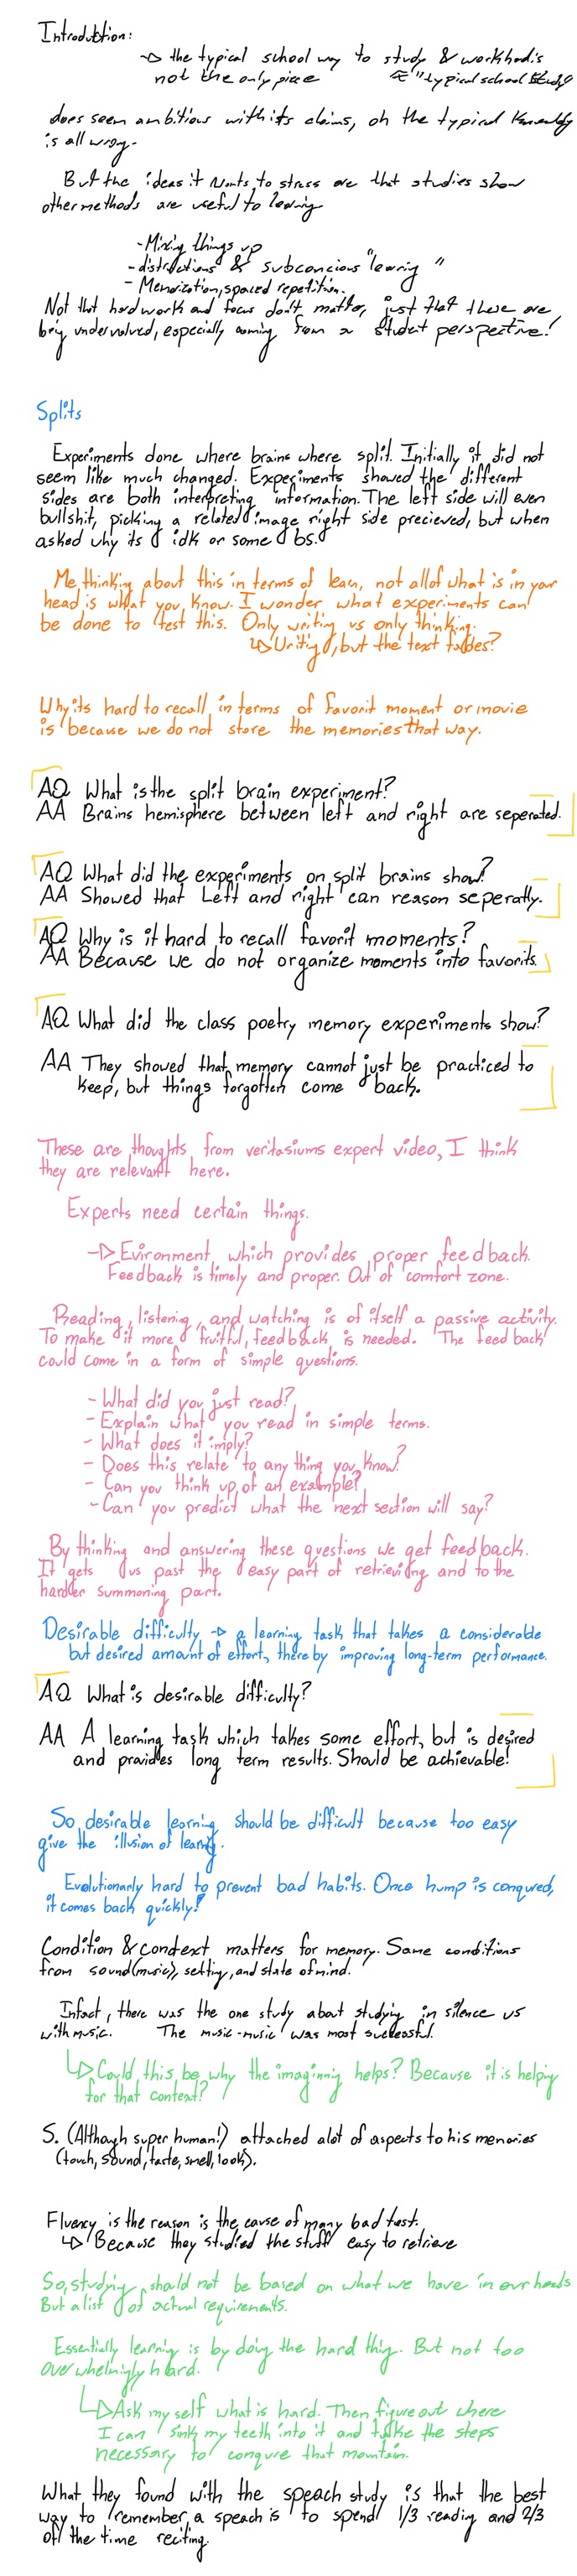 Introduction:
→ the typical school way to study & workhard is
not the only piece ← "typical school study"
does seem ambitious with its claims, oh the typical knowledge
is all wrong.
But the ideas it wants to stress are that studies show
other methods are useful to learning
- Mixing things up
- distractions & subconcious "learnig"
- Memorization, spaced repetition.
Not that hard work and focus don't matter, just that these are
beig undervalued, especially coming from a student perspective!
Splits
Experiments done where brains where split. Initially it did not
seem like much changed. Experiments showed the different
sides are both interpreting information. The left side will even
bullshit, picking a related image right side precieved, but when
asked why its idk or some bs.
Me thinking about this in terms of lean, not all of what is in your
head is what you know. I wonder what experiments can
be done to test this. Only writing vs only thinking.
↳ Writing, but the text fades?
Why its hard to recall in terms of favorit moment or movie
is because we do not store the memories that way.
AQ What is the split brain experiment?
AA Brains hemisphere between left and right are seperated.
AQ What did the experiments on split brains show?
AA Showed that Left and right can reason seperatly.
AQ Why is it hard to recall favorit moments?
AA Because we do not organize moments into favorits.
AQ What did the class poetry memory experiments show?
AA They showed that memory cannot just be practiced to
keep, but things forgotten come back.
These are thoughts from veritasiums expert video, I think
they are relevant here.
Experts need certain things.
→ Evironment which provides proper feedback.
Feedback is timely and proper. Out of comfort zone.
Reading, listening, and watching is of itself a passive activity.
To make it more fruitful, feedback is needed. The feed back
could come in a form of simple questions.
- What did you just read?
- Explain what you read in simple terms.
- What does it imply?
- Does this relate to any thing you know?
- Can you think up of an example?
- Can you predict what the next section will say?
By thinking and answering these questions we get feedback.
It gets us past the easy part of retrieving and to the
harder summoning part.
Desirable difficulty → a learning task that takes a considerable
but desired amount of effort, there by improving long-term performance.
AQ What is desirable difficulty?
AA A learning task which takes some effort, but is desired
and provides long term results. Should be achievable!
So desirable learning should be difficult because too easy
give the illusion of learng.
Evolutionarly hard to prevent bad habits. Once hump is conqured,
it comes back quickly!
Condition & context matters for memory. Same conditions
from sound(music), setting, and state of mind.
Infact, there was the one study about studying in silence vs
with music. The music-music was most sucessful.
↳ Could this be why the imaginnig helps? Because it is helpig
for that context?
S. (Although super human!) attached alot of aspects to his memories
(touch, sound, taste, smell, look).
Fluency is the reason is the cause of many bad test.
↳ Because they studied the stuff easy to retrieve
So, studying should not be based on what we have in our heads
But a list of actual requirements.
Essentially learnig is by doing the hard thig. But not too
overwhelmingly hard.
↳ Ask my self what is hard. Then figure out where
I can sink my teeth into it and take the steps
necessary to conqure that mountain.
What they found with the speach study is that the best
way to remember a speach is to spend 1/3 reading and 2/3
off the time reciting.